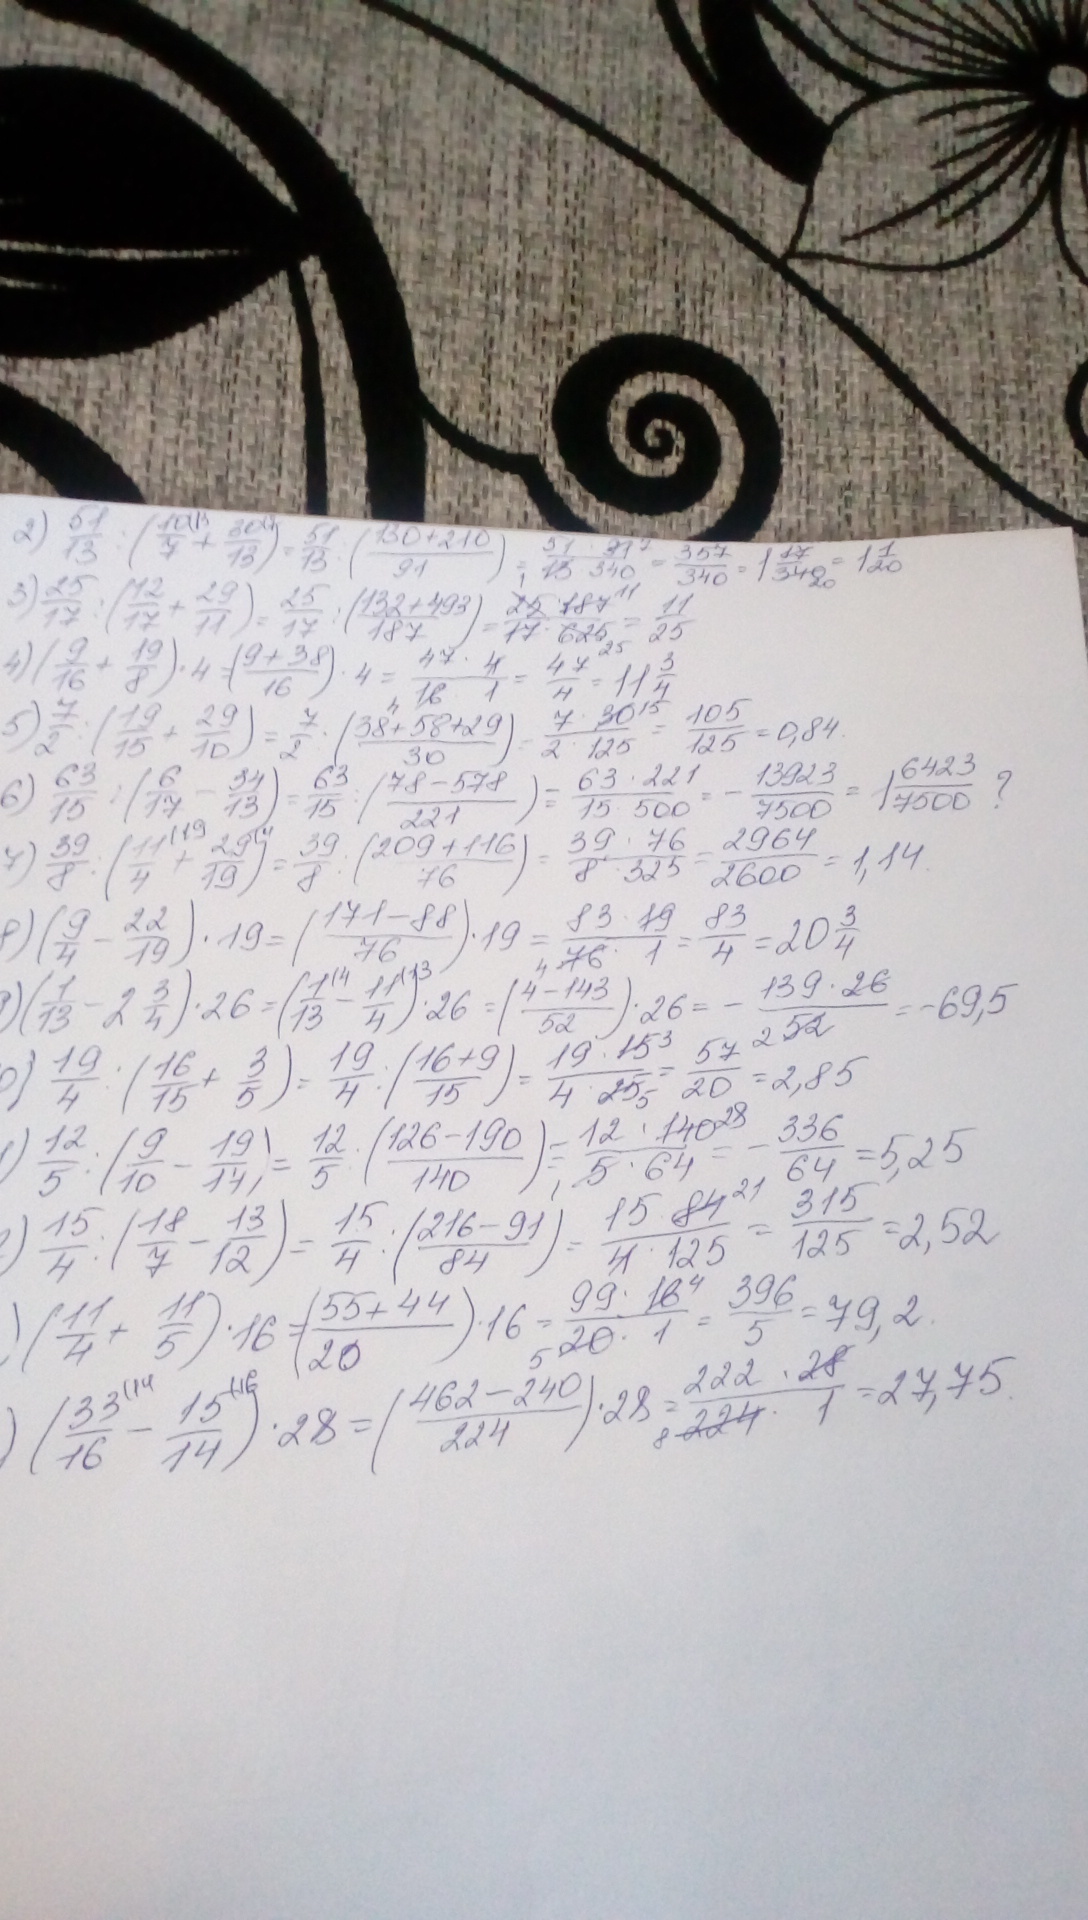 2) 51/13 : (10/7 + 30/13) = 51/13 : (130+210/91) = 51 · 91/13 · 340 = 357/340 = 1 17/340 = 1 1/20
3) 25/17 : (12/17 + 29/11) = 25/17 : (132+493/187) = 25 · 187/17 · 625 = 11/25
4) (9/16 + 19/8) · 4 = (9+38/16) · 4 = 47 · 4/16 · 1 = 47/4 = 11 3/4
5) 7/2 : (19/15 + 29/10) = 7/2 : (38+58+29/30) = 7 · 30/2 · 125 = 105/125 = 0,84.
6) 63/15 : (6/17 - 34/13) = 63/15 : (78-578/221) = 63 · 221/15 · 500 = - 13923/7500 = 1 6423/7500 ?
7) 39/8 : (11/4 + 29/19) = 39/8 : (209+116/76) = 39 · 76/8 · 325 = 2964/2600 = 1,14.
8) (9/4 - 22/19) · 19 = (171-88/76) · 19 = 83 · 19/76 · 1 = 83/4 = 20 3/4
9) (1/13 - 2 3/4) · 26 = (1/13 - 11/4) · 26 = (4-143/52) · 26 = - 139 · 26/52 = -69,5
0) 19/4 : (16/15 + 3/5) = 19/4 : (16+9/15) = 19 · 15/4 · 25 = 57/20 = 2,85
1) 12/5 : (9/10 - 19/14) = 12/5 : (126-190/140) = 12 · 140/5 · 64 = - 336/64 = 5,25
2) 15/4 : (18/7 - 13/12) = 15/4 : (216-91/84) = 15 · 84/4 · 125 = 315/125 = 2,52
) (11/4 + 11/5) · 16 = (55+44/20) · 16 = 99 · 16/20 · 1 = 396/5 = 79,2.
) (33/16 - 15/14) · 28 = (462-240/224) · 28 = 222 · 28/224 · 1 = 27,75.